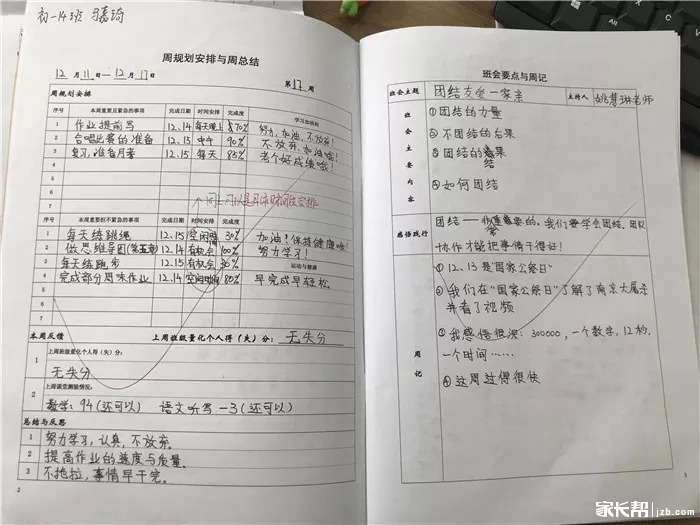 初一14班
周规划安排与周总结
12月11日—12月17日 第17周
周规划安排
序号 本周重要且紧急的事项 完成日期 时间安排 完成度 学习加油站
1 作业提前写 12.14 每天晚上 870% 努力,加油,不放弃!
2 合唱比赛的准备 12.15 中午 90% 不放弃,加油哦!
3 复习,准备月考 12.15 每天 85% 考个好成绩哦!
4
5
6
7
序号 本周重要但不紧急的事项 完成日期 时间安排 完成度
1 每天练跳绳 12.15 空闲时 30% 加油!保持健康哦!
2 做思维导图(第五章) 12.14 有机会 100% 努力学习!
3 每天练跑步 12.15 有机会 30% 运动与健康
4 完成部分周末作业 12.14 空闲时间 80% 早完成早轻松
5
6
7
本周反馈 上周班级量化个人得(失)分: 无失分
1 上周班级量化个人得(失)分:
无失分
2 上周课堂测验情况:
数学:94(还可以) 语文听写-3(还可以)
总结与反思
1 努力学习,认真,不放弃。
2 提高作业的速度与质量。
3 不拖拉,事情早干完。
2
班会要点与周记
班会主题 团结友爱一家亲 主持人 姚慧琳老师
班会主要内容
①团结的力量
②不团结的后果
③团结的结果
④如何团结
感悟践行 团结一非常重要的。我们要学会团结,团队
协作才能把事情干得好!
周记
①12、13是"国家公祭日"
②我们在"国家公祭日"了解了南京大屠杀
并看了视频
③我感悟很深:300000,一个数字,12秒,
一个时间……
④这周过得很快
3
家长帮 jzb.com